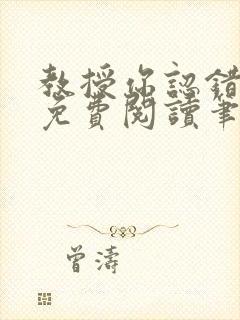 教授你認錯
免費閱讀筆
曾濤